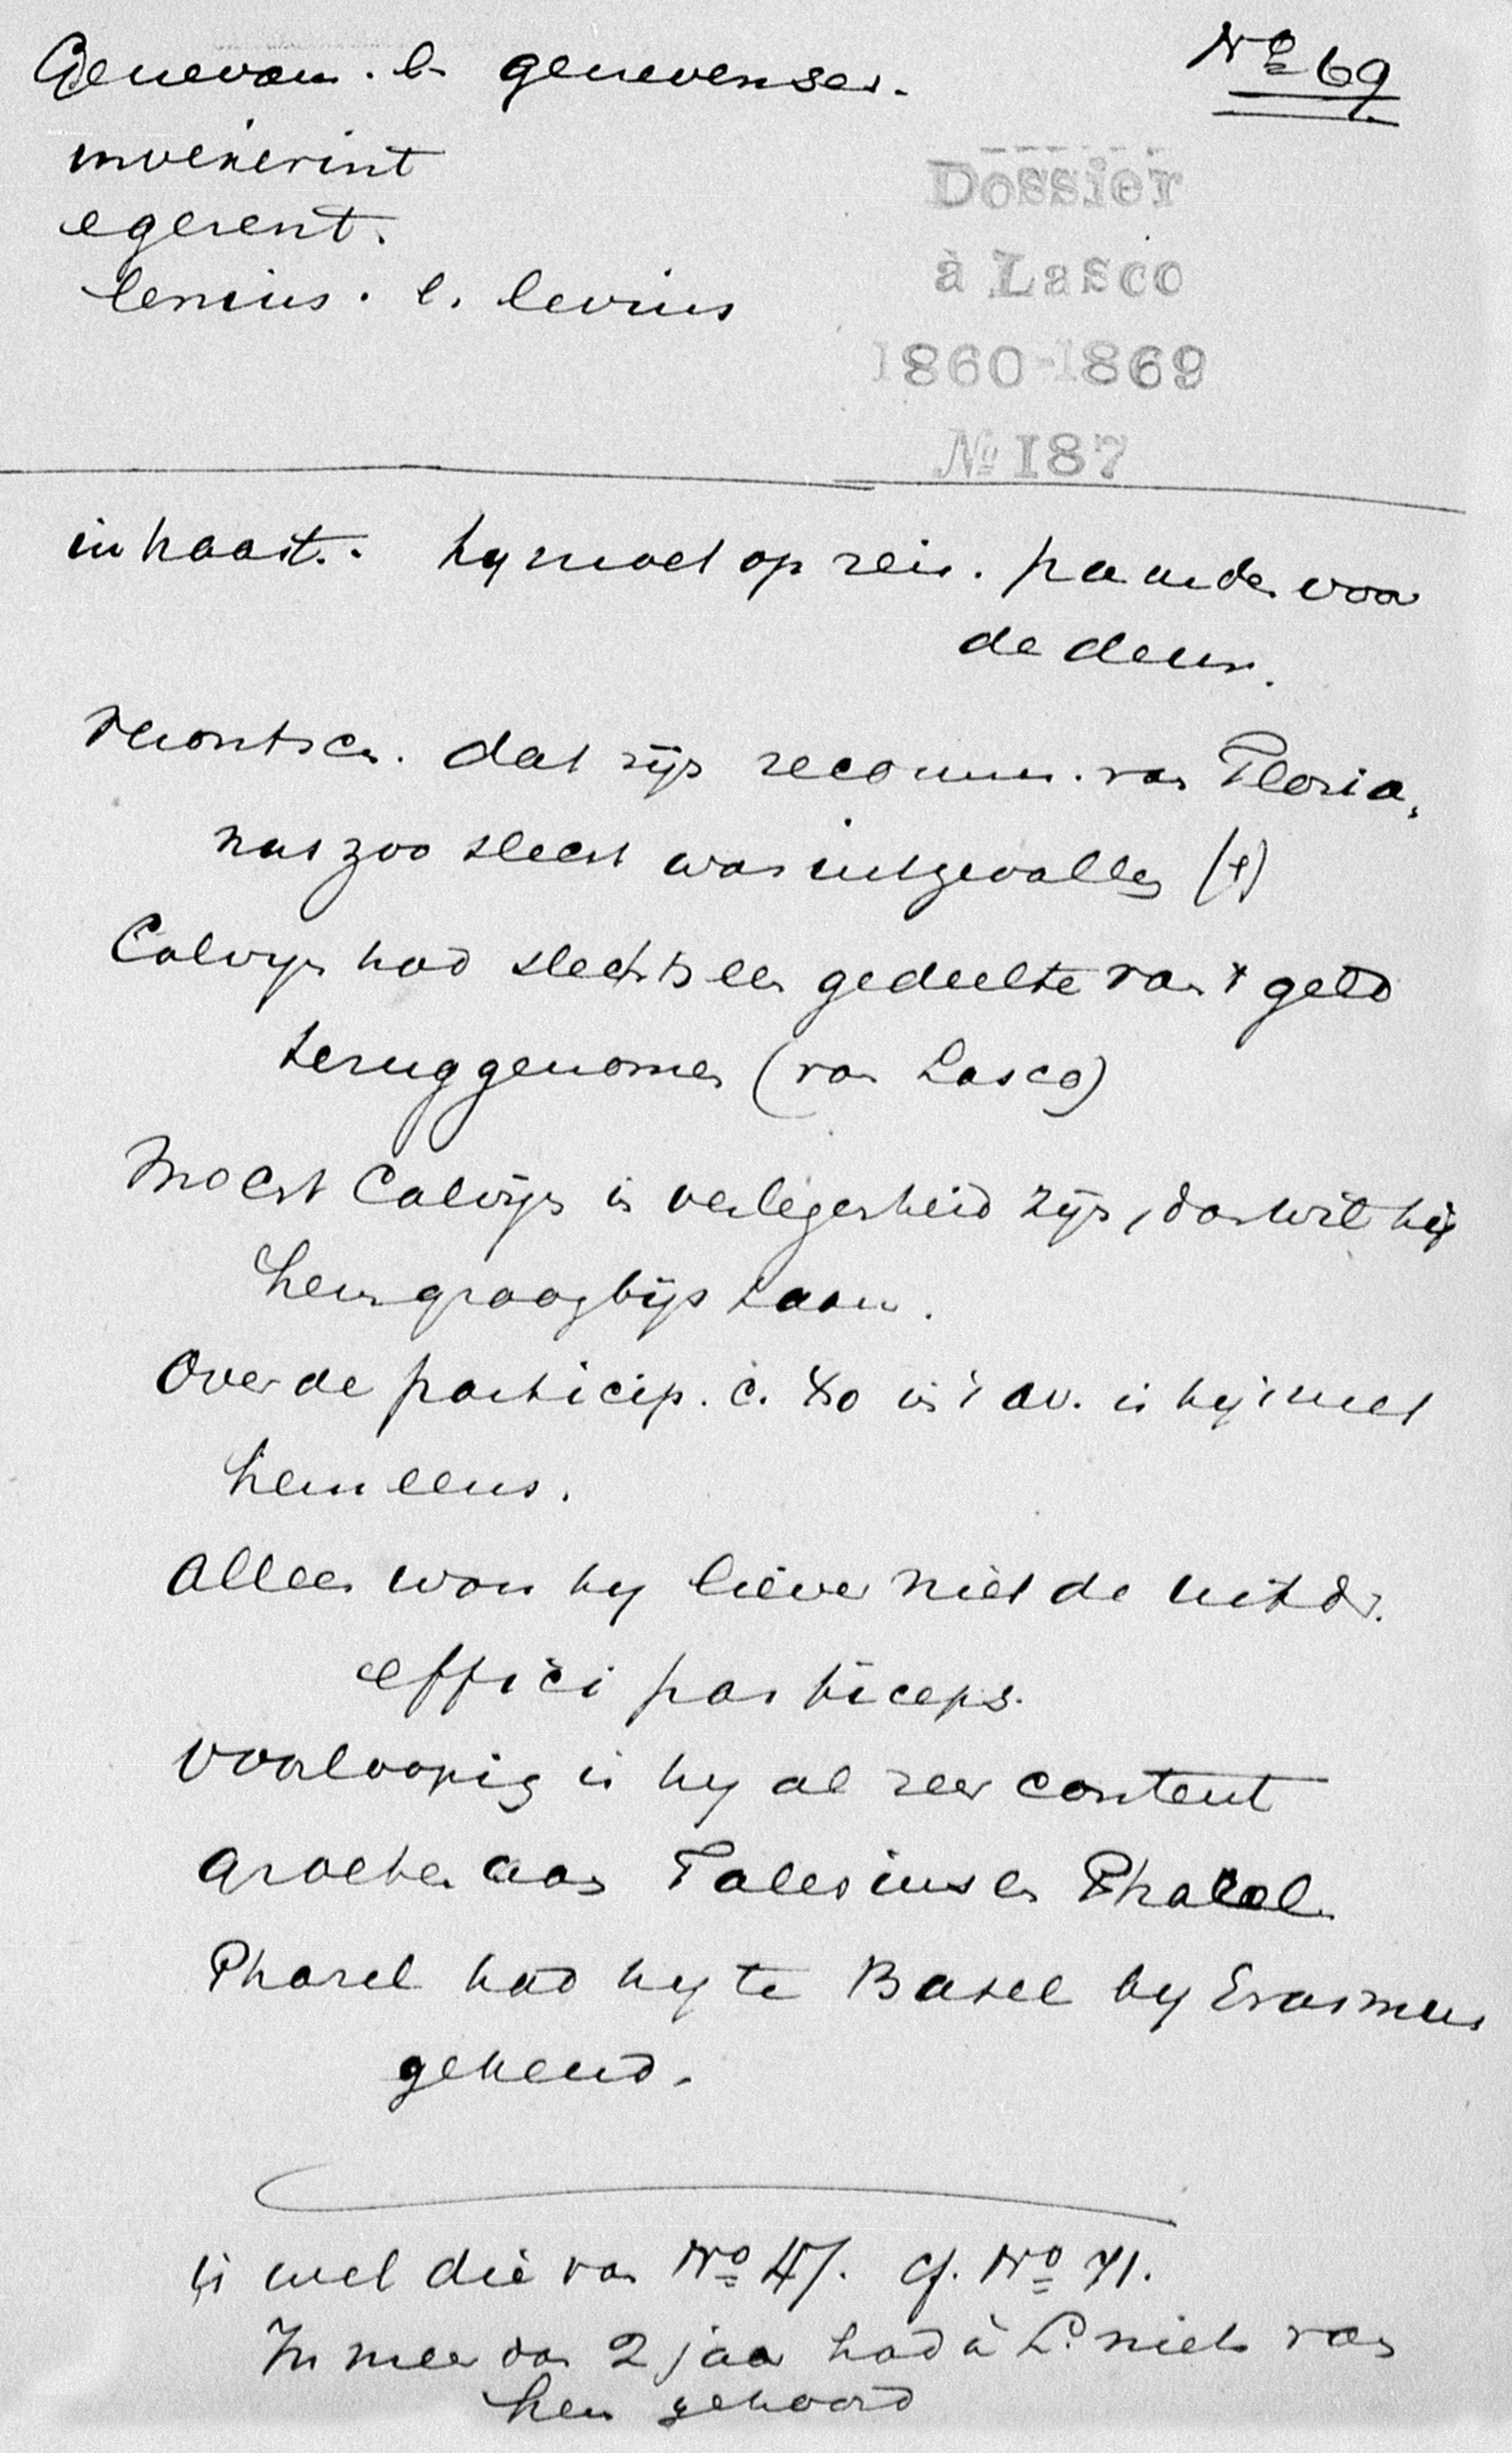 Genevam. l. genevenses.
Nº 69
invenerint
egerent.
lenius. l. levius
Dossier
à Lasco
1860-1869
№ 187
in haast. hy moet op reis. paarden voor
de deur.
dat zijn recomm. van Floria,
nus zoo slecht was uitgevallen (1)
Calvyn had slechts een gedeelte van 't geld
teruggenomen (van Lasco)
Mocht Calvijn in verlegenheid zijn, dan wil hij
hem graag bijstaan.
Over de particip. c. Xo in 't av. is hij 't met
hem eens.
Alleen wou hy liever niet de uitdr.
effici particeps.
Voorloopig is hy al zeer content
Groeten aan Falesius en Pharel.
Pharel had hy te Basel by Erasmus
gekend.
is wel die van Nº 47. cf. Nº 71.
In meer dan 2 jaar had à L. niets van
hem gehoord